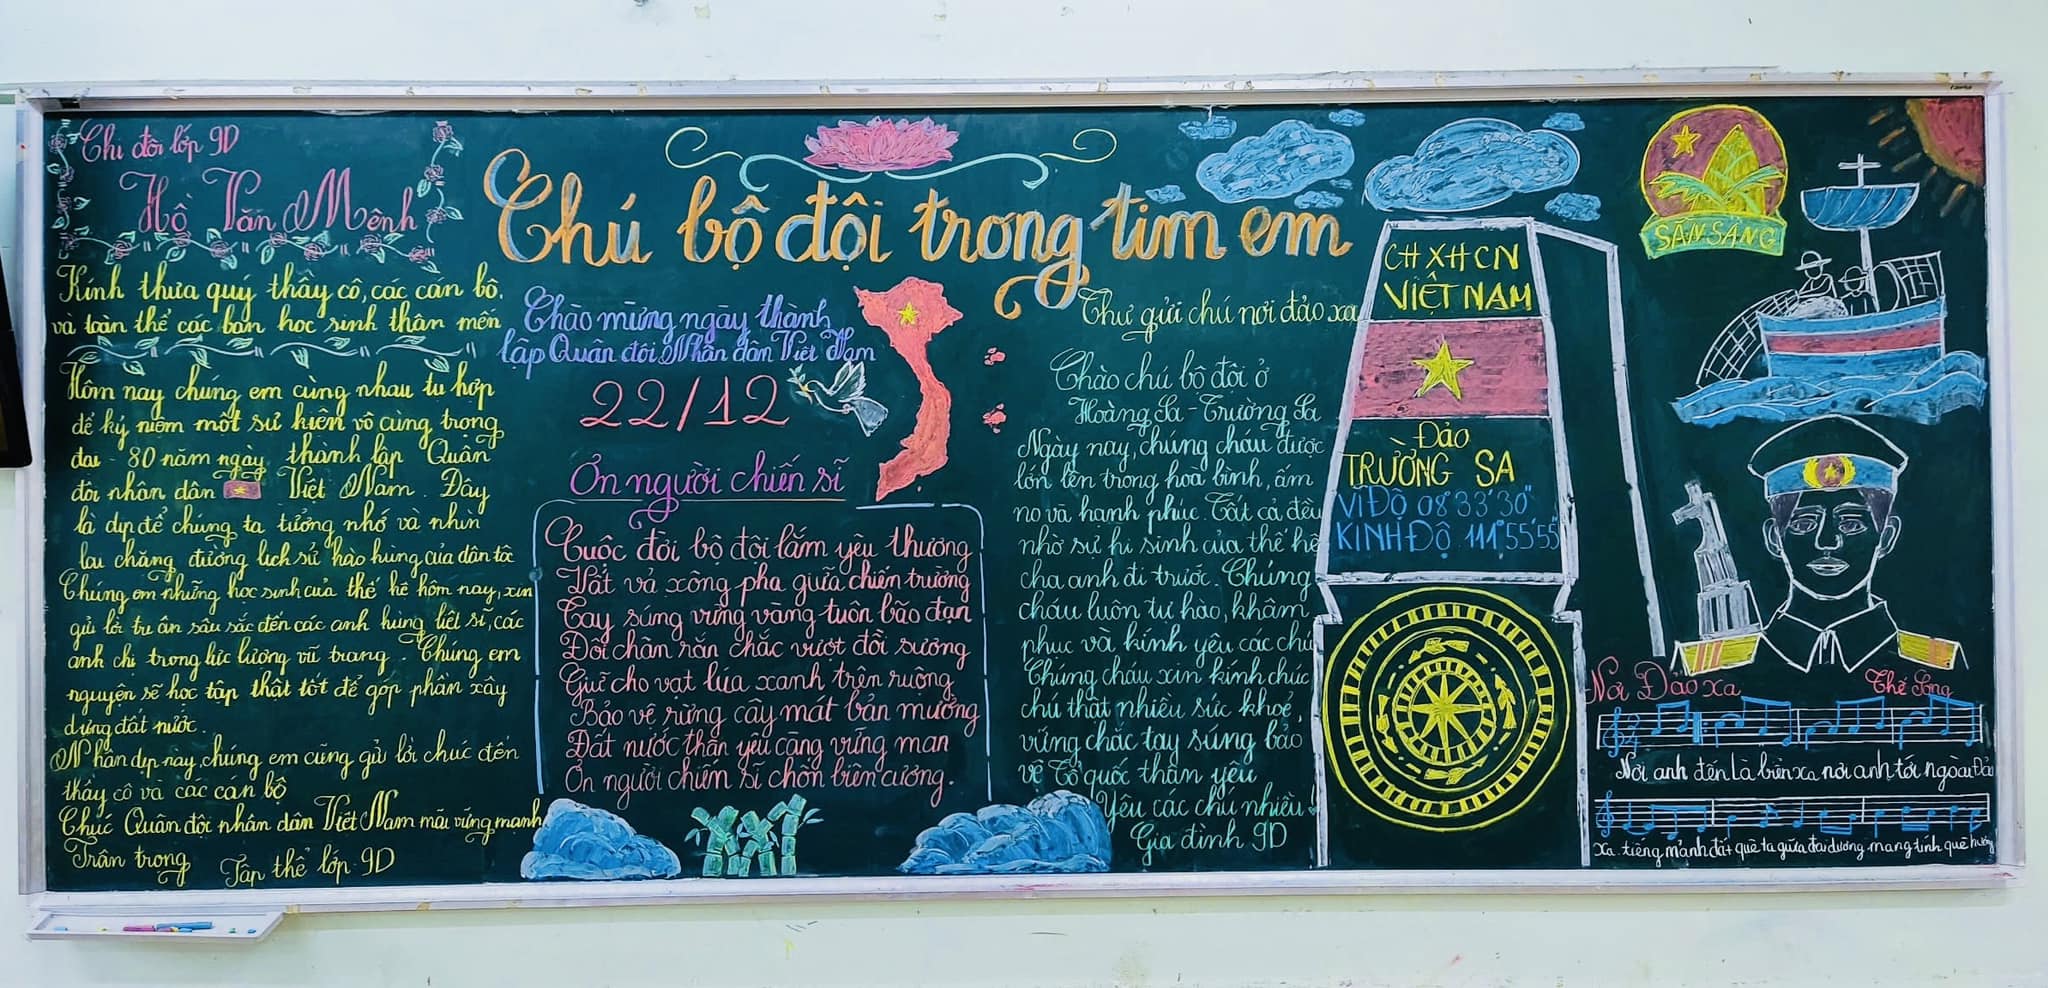 Chi đội lớp 9D
Hồ Văn Mênh
Kính thưa quý thầy cô, các cán bộ.
và toàn thể các bạn học sinh thân mến
Hôm nay chúng em cùng nhau tụ họp
để kỷ niệm một sự kiện vô cùng trọng
đại - 80 năm ngày thành lập Quân
đội nhân dân Việt Nam. Đây
là dịp để chúng ta tưởng nhớ và nhìn
lại chặng đường lịch sử hào hùng của dân tộc
Chúng em những học sinh của thế hệ hôm nay, xin
gửi lời tri ân sâu sắc đến các anh hùng liệt sĩ, các
anh chị trong lực lượng vũ trang. Chúng em
nguyện sẽ học tập thật tốt để góp phần xây
dựng đất nước.
Nhân dịp này, chúng em cũng gửi lời chúc đến
thầy cô và các cán bộ
Chúc Quân đội nhân dân Việt Nam mãi vững mạnh
Trân trọng
Tập thể lớp 9D
Chú bộ đội trong tim em
Chào mừng ngày thành
lập Quân đội Nhân dân Việt Nam
22/12
Ơn người chiến sĩ
Cuộc đời bộ đội lắm yêu thương
Vất vả xông pha giữa chiến trường
Tay súng vững vàng tuôn bão đạn
Đôi chân rắn chắc vượt đồi sương
Giữ cho vạt lúa xanh trên ruộng
Bảo vệ rừng cây mát bản mường
Đất nước thân yêu càng vững mạn
Ơn người chiến sĩ chốn biên cương.
Thư gửi chú nơi đảo xa
Chào chú bộ đội ở
Hoàng Sa - Trường Sa
Ngày nay, chúng cháu được
lớn lên trong hoà bình, ấm
no và hạnh phúc. Tất cả đều
nhờ sự hi sinh của thế hệ
cha anh đi trước. Chúng
cháu luôn tự hào, khâm
phục và kính yêu các chú
Chúng cháu xin kính chúc
chú thật nhiều sức khoẻ,
vững chắc tay súng bảo
vệ Tổ quốc thân yêu
Yêu các chú nhiều!
Gia đình 9D
CHXHCN
VIỆT NAM
Đảo
TRƯỜNG SA
VĨ ĐỘ 08°33'30"
KINH ĐỘ 111°55'55"
SẴN SÀNG
Nơi Đảo xa
Thế Song
Nơi anh đến là biển xa nơi anh tới ngoài Đảo
xa. tiếng mảnh đất quê ta giữa đại dương mang tình quê hương